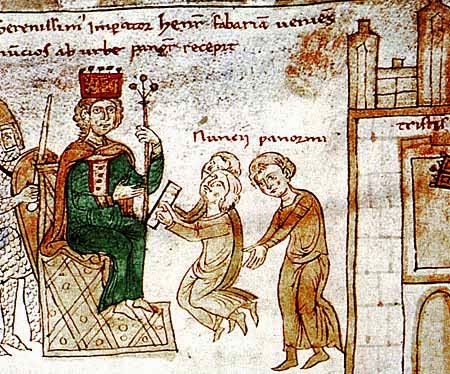 Serenissim' imperator henr' fabariā veniēs
nūcios ab urbe panor recepit
Nuncij panormi
tristis